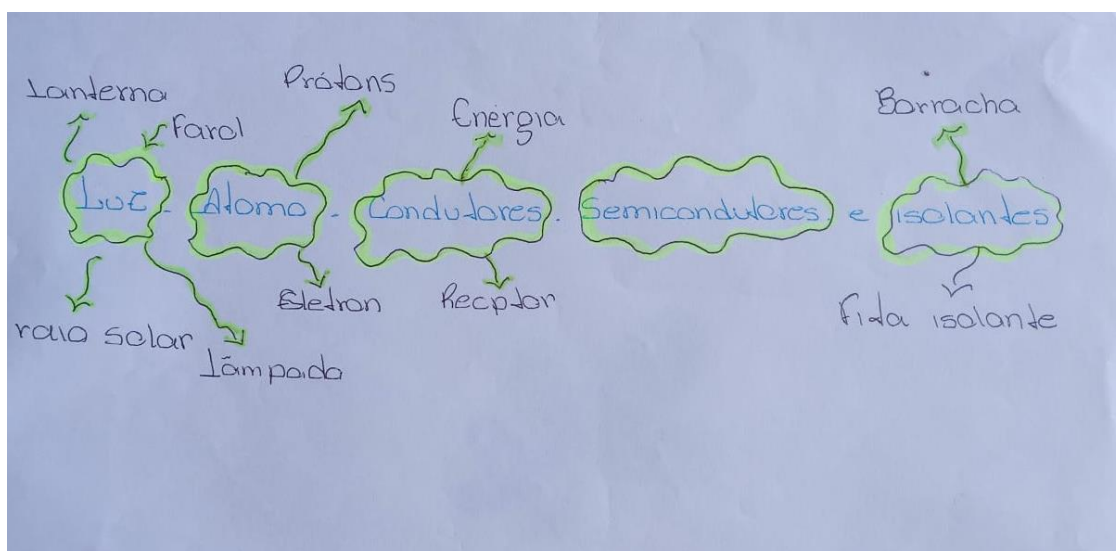 Lanterna
Farol
Prótons
Energia
Borracha
Luz - Atomo - Condutores - Semicondutores e isolantes
Eletron
Recptor
Fita isolante
raio solar
Lâmpada